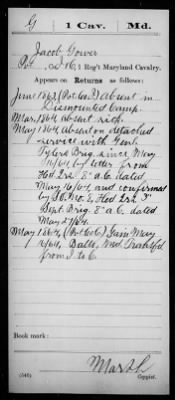 G 1 Cav. Md.
Jacob Gower
Pvt., Co. G, 1 Reg't Maryland Cavalry.
Appears on Returns as follows:
June 1863 absent in
Dismounted Camp.
Mar. 1864 absent sick.
May 1864 absent on detached
service with Genl.
Tylers Brig. since May
16/64 by letter from
Hd Qrs 8" A.C. dated
May 16/64, and confirmed
by S.O. No. 2, Hd Qrs 3"
Sept. Brig. 8" A.C. dated
May 27/64.
May 1864, (Pvt Co C) Gain May
Balto. Md. Transf'd
from I to C.
Book mark:
Marsh
(546) Copyist.